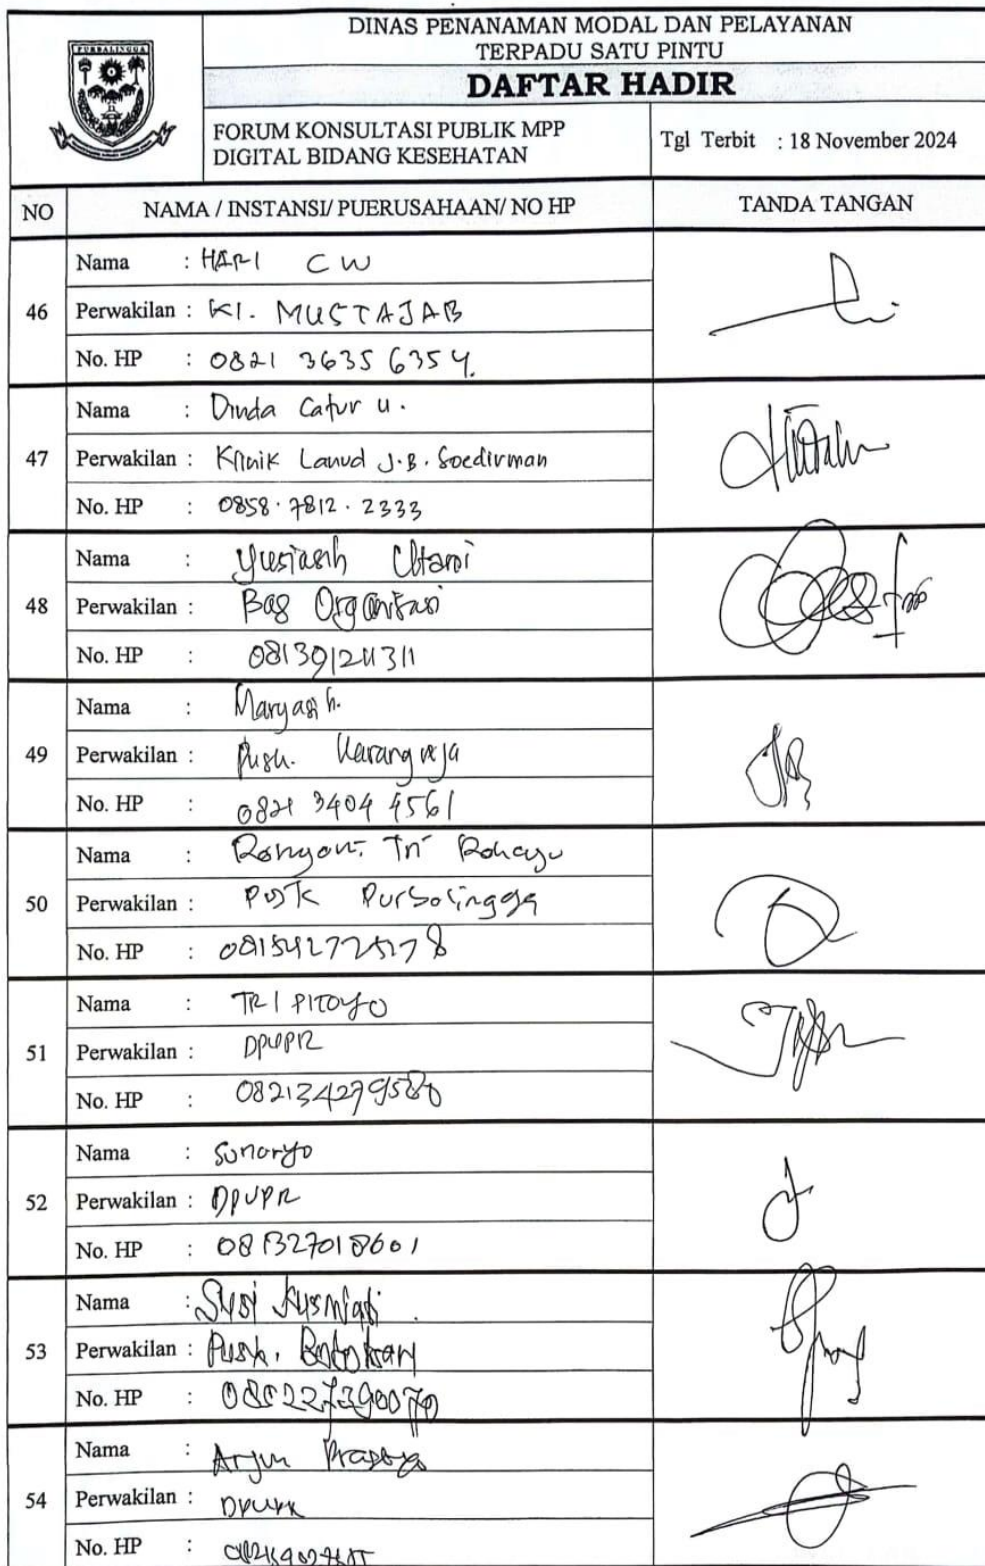 PURBALINGGA
DINAS PENANAMAN MODAL DAN PELAYANAN
TERPADU SATU PINTU
DAFTAR HADIR
FORUM KONSULTASI PUBLIK MPP
DIGITAL BIDANG KESEHATAN
Tgl Terbit : 18 November 2024
NO NAMA / INSTANSI/ PUERUSAHAAN/ NO HP TANDA TANGAN
46
Nama : HARI C W
Perwakilan : Kl. MUSTAJAB
No. HP : 0821 3635 6354
47
Nama : Dinda Catur U.
Perwakilan : Klinik Lanud J.B. Soedirman
No. HP : 0858 · 7812 · 2333
48
Nama : Yusiasih Utami
Perwakilan : Bag Organisasi
No. HP :
49
Nama : Maryasih.
Perwakilan : Pusk. Karangreja
No. HP : 0821 3404 4561
50
Nama : Tri Rahayu
Perwakilan : Purbalingga
No. HP :
51
Nama : TRI PITOYO
Perwakilan : DPUPR
No. HP : 082134279580
52
Nama : Sunaryo
Perwakilan : DPUPR
No. HP : 081327018601
53
Nama : Susi Kusmiati
Perwakilan : Pusk.
No. HP :
54
Nama : Arjun
Perwakilan : DPUPR
No. HP :